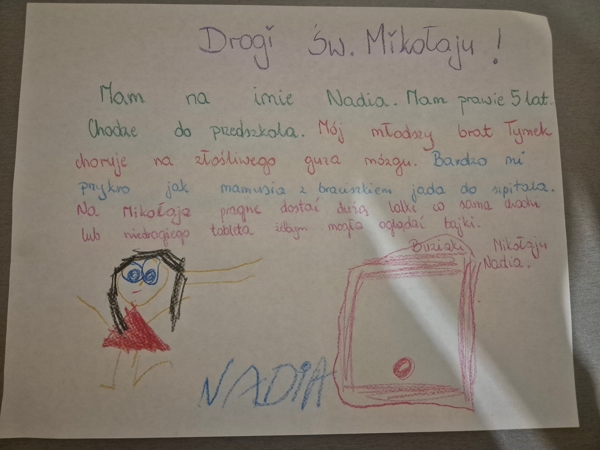 Drogi Św. Mikołaju!
Mam na imie Nadia. Mam prawie 5 lat.
Chodze do przedszkola. Mój młodszy brat Tymek
choruje na złośliwego guza mózgu. Bardzo mi
przykro jak mamusia z braciszkiem jada do szpitala.
Na Mikołaja pragnę dostać dużą lalkę co sama chodzi
lub niedrogiego tableta żebym mogła oglądać bajki.
Buziaki Mikołaju
Nadia.
NADIA